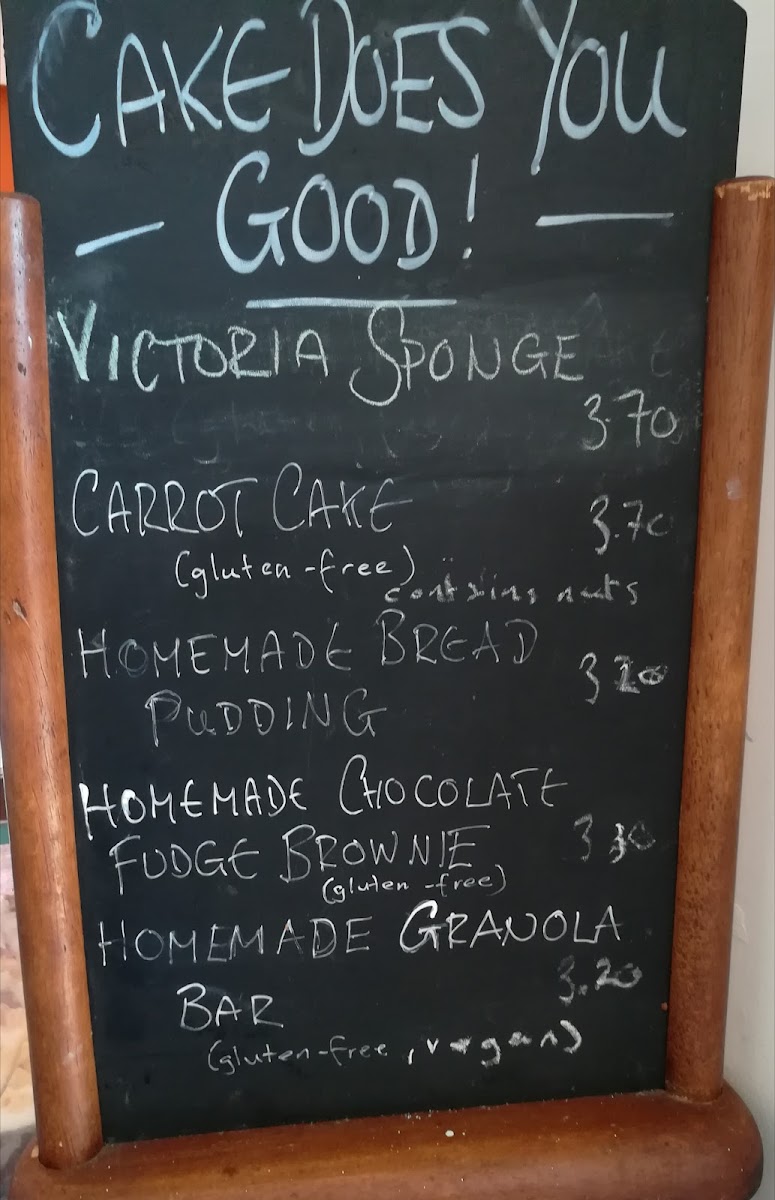 CAKE DOES YOU
— GOOD! —
VICTORIA SPONGE
3.70
CARROT CAKE 3.70
(gluten-free)
contains nuts
HOMEMADE BREAD
PUDDING
HOMEMADE CHOCOLATE
FUDGE BROWNIE
(gluten-free)
HOMEMADE GRANOLA
3.20
BAR
(gluten-free, vegan)